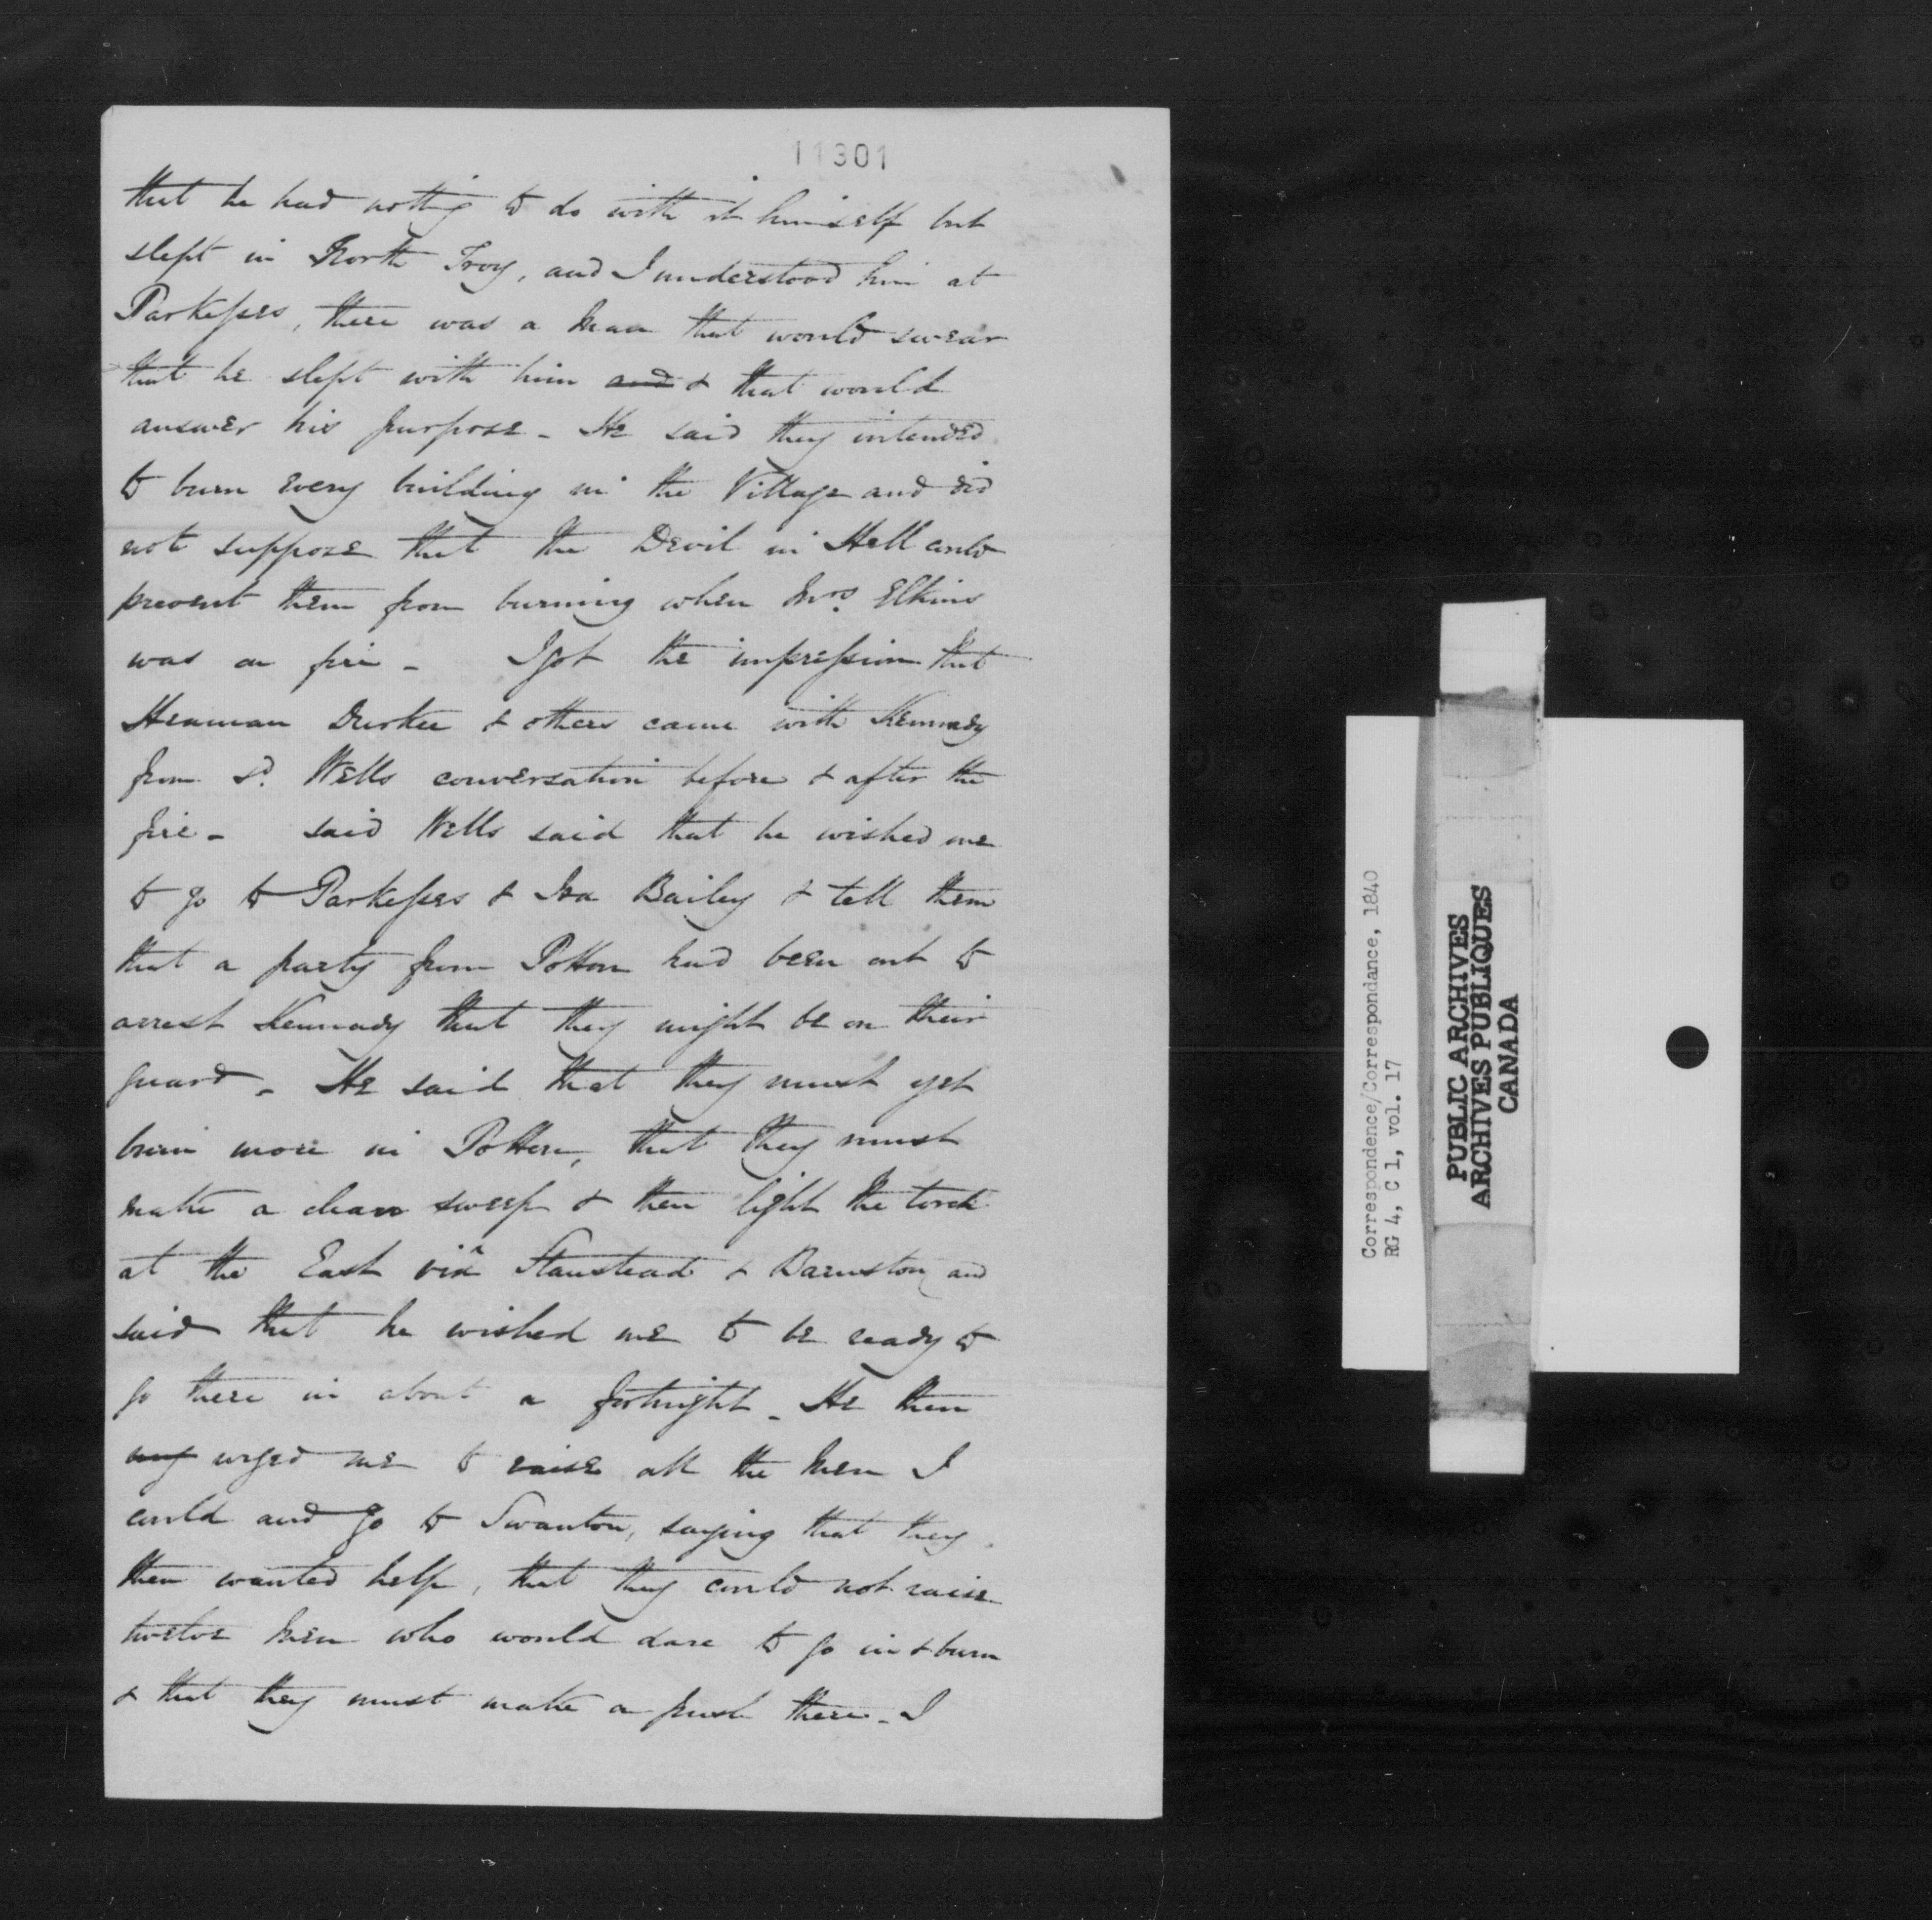 11301
that he had nothing to do with it himself but
slept in North Troy, and I understood him at
Parkesses, there was a man that would swear
that he slept with him and & that would
answer his purpose - He said they intended
to burn every building in the Village and did
not suppose that the Devil in Hell could
prevent them from burning when Mrs. Elkins
was on fire - I got the impression that
Heaman Durkee & others came with Kennady
from sd. Wells conversation before & after the
fire - said Wells said that he wished me
to go to Parkesses & Ira Bailey & tell them
that a party from Potton had been out to
arrest Kennady that they might be on their
guard - He said that they must yet
burn more in Potton, that they must
make a clean sweep & then light the torch
at the East viâ Stanstead & Barnston and
said that he wished me to be ready to
go there in about a fortnight - He then
urged me to raise all the men I
could and go to Swanton, saying that they
then wanted help, that they could not raise
twelve men who would dare to go in & burn
& that they must make a push there - I
Correspondence/Correspondance, 1840
RG 4, C 1, vol. 17
PUBLIC ARCHIVES
ARCHIVES PUBLIQUES
CANADA